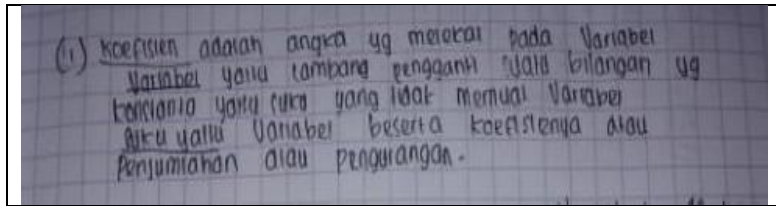 (1) Koefisien adalah angka yg melekat pada Variabel
Variabel yaitu lambang pengganti suatu bilangan yg
konstanta yaitu suku yang tidak memuat Variabel
suku yaitu Variabel beserta koefisienya atau
Penjumlahan atau pengurangan.